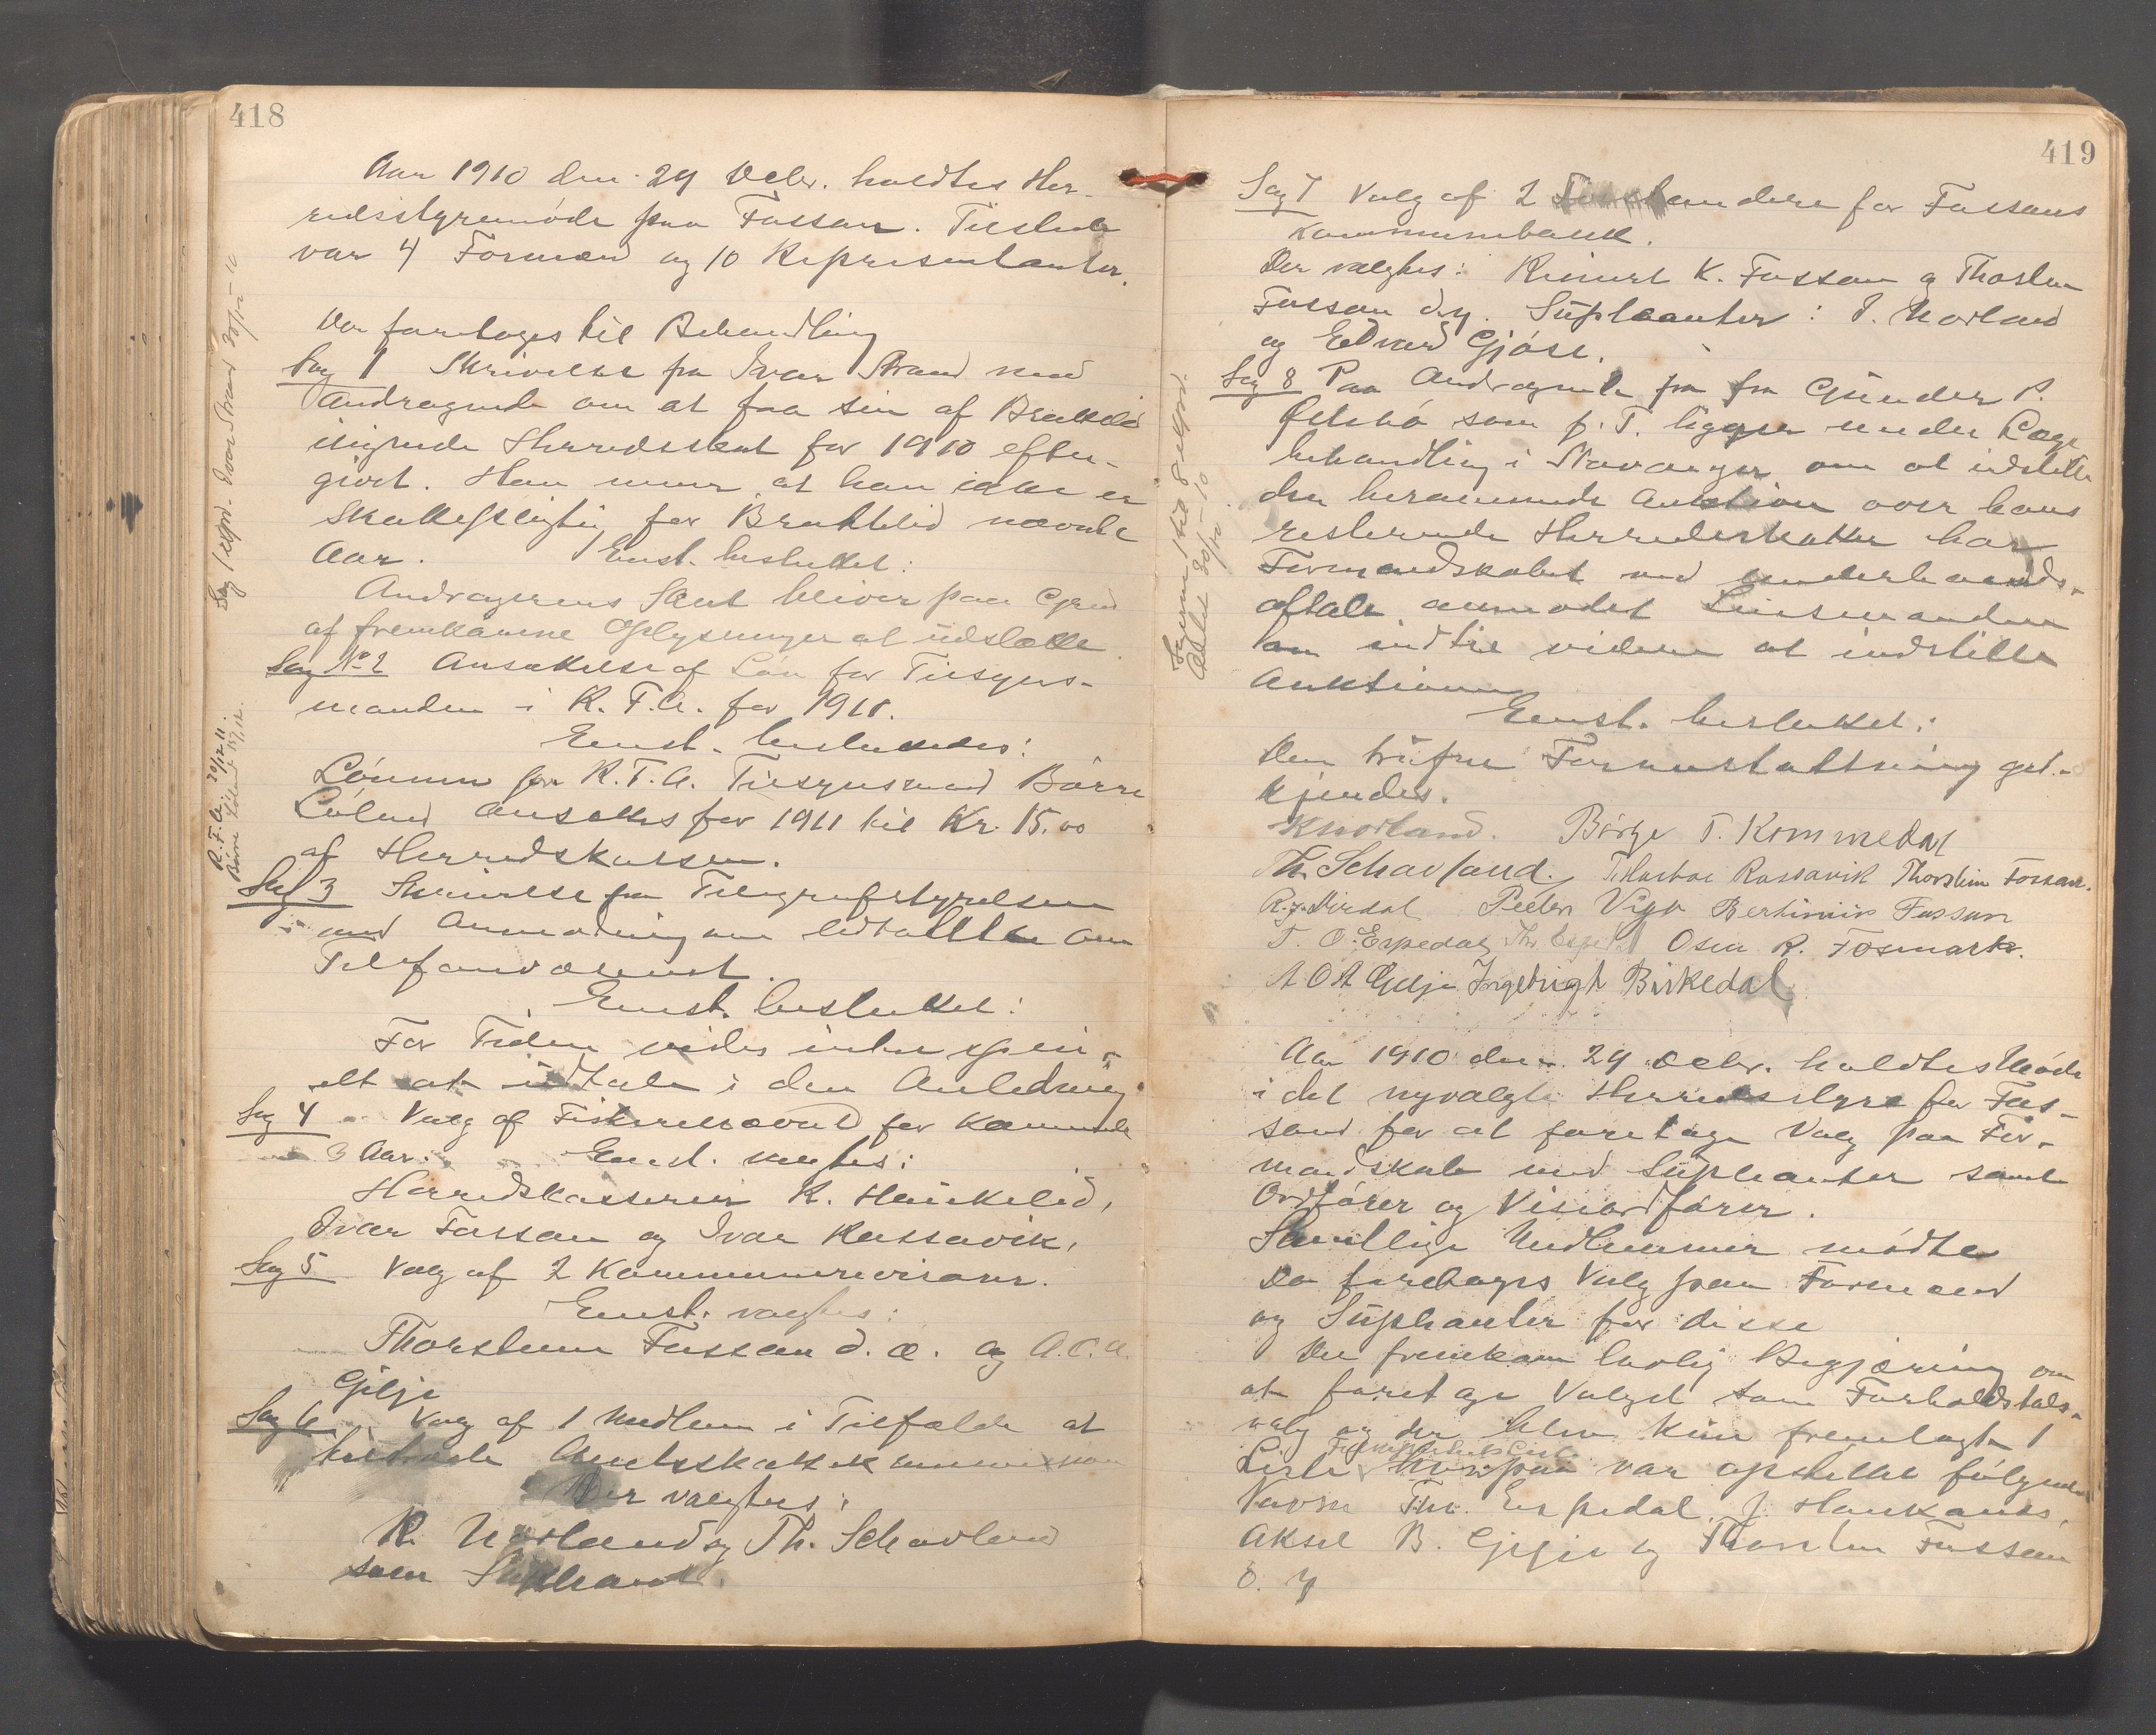 418
Aar 1910 den 29 Debr. holdtes Her-
redsstyremøde paa Fossan. Tilstede
var 4 Formænd og 10 Repræsentanter.
Der foretoges til Behandling
Sag 1 Skrivelse fra Ivar Strand med
Andragende om at faa sin af Brattelid
Herredsskat for 1910 efter-
givet. Han mener at han ikke er
Skattepligtig for Brattelid nævnte
Aar. Enst. besluttet:
Andragerens Skat bliver paa Grund
af fremkomne Oplysninger at udslætte.
Sag No 2 Ansættelse af Løn for Tilsyns-
manden i R. F. A. for 1911.
Enst. besluttedes:
Lønnen for R. F. A. Tilsynsmand Børre
Løland ansættes for 1911 til Kr. 15.00
af Herredskassen.
Sag 3 Skrivelse fra Telegrafstyrelsen
med Anmodning om Udtallelse om
Telefonvæsenet.
Enst. besluttet:
For Tiden vides intet speci-
elt at udtale i den Anledning.
Sag 4 Valg af Fiskerinævnd for kommende
3 Aar. Enst. valgtes:
Herredskasserer R. Haukelid,
Ivar Fossan og Ivar Rossavik.
Sag 5 Valg af 2 Kommunerevisorer.
Enst. valgtes:
Thorsteen Fossan d. æ. og A. O. A.
Gilje
Sag 6 Valg af 1 Medlem i Tilfælde at
tiltræde Amtsskattekommission
Der valgtes:
K. Norland og Th. Schavland
som Suppleant.
Sag 1 expd. Ivar Strand 30/12-10
R. F. A. 30/12 11.
Børre Løland 15/12.
419
Sag 7 Valg af 2 for Fossans
Kommunebank.
Der valgtes: Reinert K. Fossan og Thorsten
Fossan d. y. Supleanter: T. Norland
og Edvard Gjøse.
Sag 8 Paa Andragende fra fra Gunder P.
som p. T. ligger under Læge
behandling i Stavanger om at indstille
den berammede Auktion over hans
resterende Herredsskatter har
Formandskabet ved underhaands-
aftale anmodet Lensmanden
om indtil videre at indstille
Auktionen
Enst. besluttet:
Den trufne Foranstaltning god-
kjendes.
K Norland. Børge T. Kommedal
Th. Schavland. T Rossavik Thorstein Fossan.
R. J. Mirdal Peder Vigo Bertinius Fossan
T. O. Espedal Th. Espedal Osea R. Fosmark.
A O A Gilje Ingebrigt Birkedal
Aar 1910 den 29 Debr. holdtes Møde
i det nyvalgte Herredsstyre for Fos-
sand for at foretage Valg paa For-
mandskab med Supleanter samt
Ordfører og Viseordfører.
Samtlige Medlemmer mødte
Da foretoges Valg paa Formænd
og Supleanter for disse
Der fremkom lovlig Begjæring om
at foretage Valget som Forholdstals-
valg og der blev kun fremlagt 1
Liste hvorpaa var opstillet følgende
Navne Th. Espedal, J. Haukanes,
Aksel B. Gilje og Thorsten Fossan
d. y
Sagerne 1 til 8 expd.
30/12-10